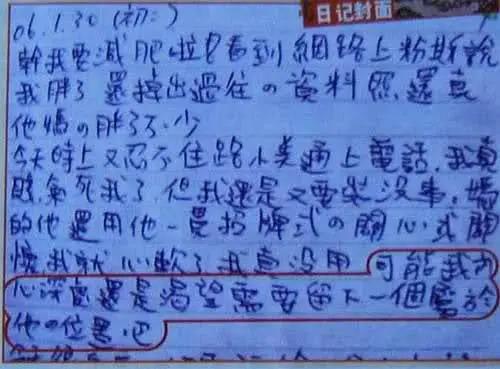 日记封面
06.1.30(初二)
幹我要減肥啦!看到網路上粉斯說
我胖了 還撐出過往の資料照,還真
他媽の胖了不少
今天晚上又忍不住路小美通上電話.我真
氣死我了,但我還是又要裝沒事.媽
的他還用他一貫招牌式の關心,式關
懷我就心軟了我真没用 可能我內
心深處還是渴望需要留下一個屬於
他の位置吧